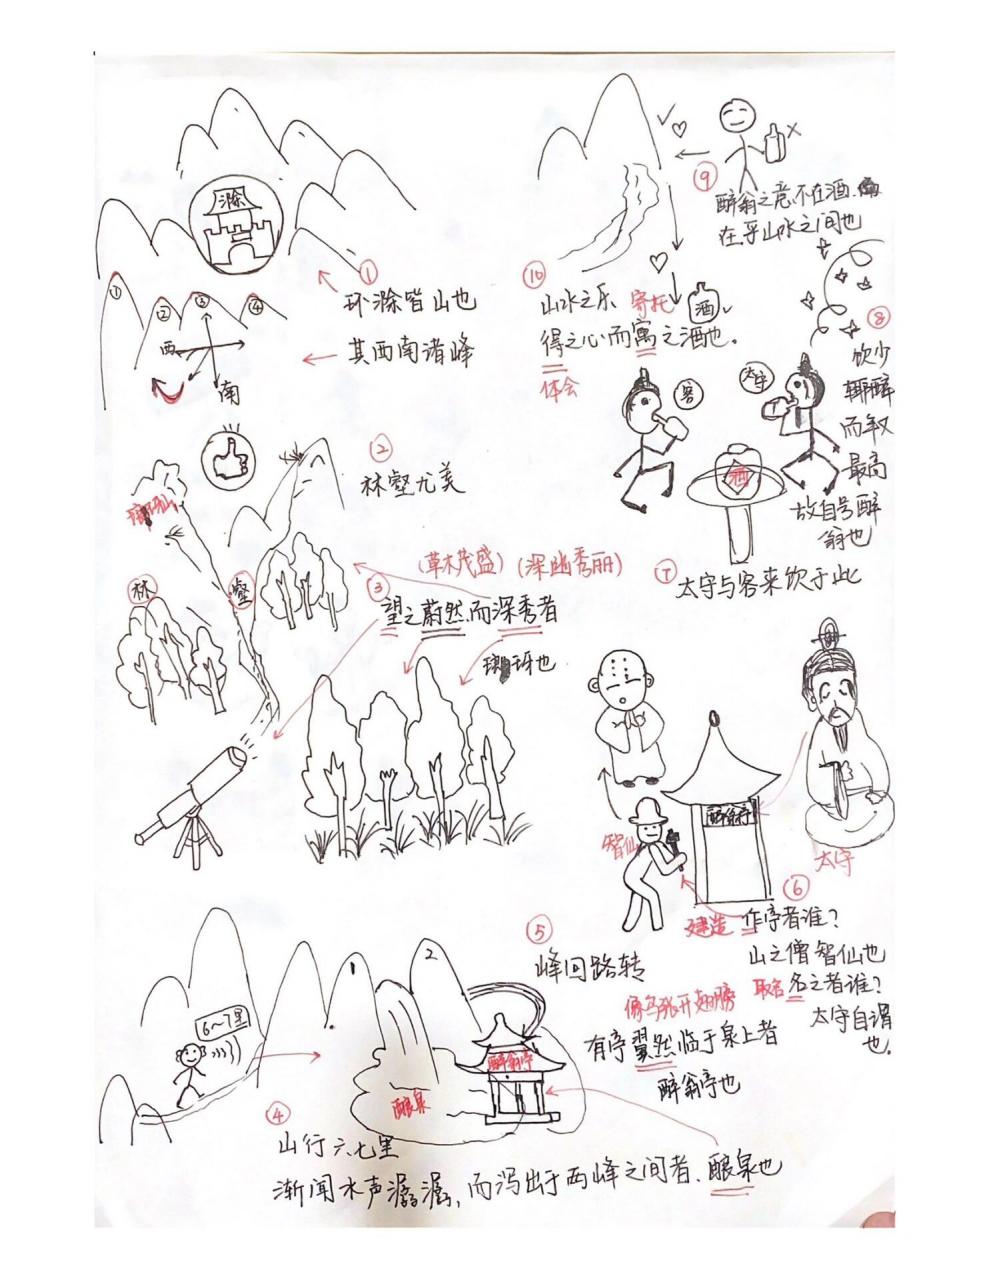 滁
①
环滁皆山也
① ② ③ ④
西
南
其西南诸峰
②
林壑尤美
琅琊山
林
壑
(草木茂盛)(深幽秀丽)
③
望之蔚然而深秀者
琅玡也
6~7里
④
山行六七里
渐闻水声潺潺,而泻出于两峰之间者、酿泉也
1
2
酿泉
醉翁亭
⑤
峰回路转
像鸟张开翅膀
有亭翼然临于泉上者
醉翁亭也
智仙
醉翁亭
太守
⑥
建造
作亭者谁?
山之僧智仙也
取名
名之者谁?
太守自谓
也.
⑦
太守与客来饮于此
客
太守
酒
⑧
饮少
辄醉
而年又
最高
故自号醉
翁也
⑨
醉翁之意不在酒.
在乎山水之间也
⑩
山水之乐
寄托
酒
得之心而寓之酒也。
体会